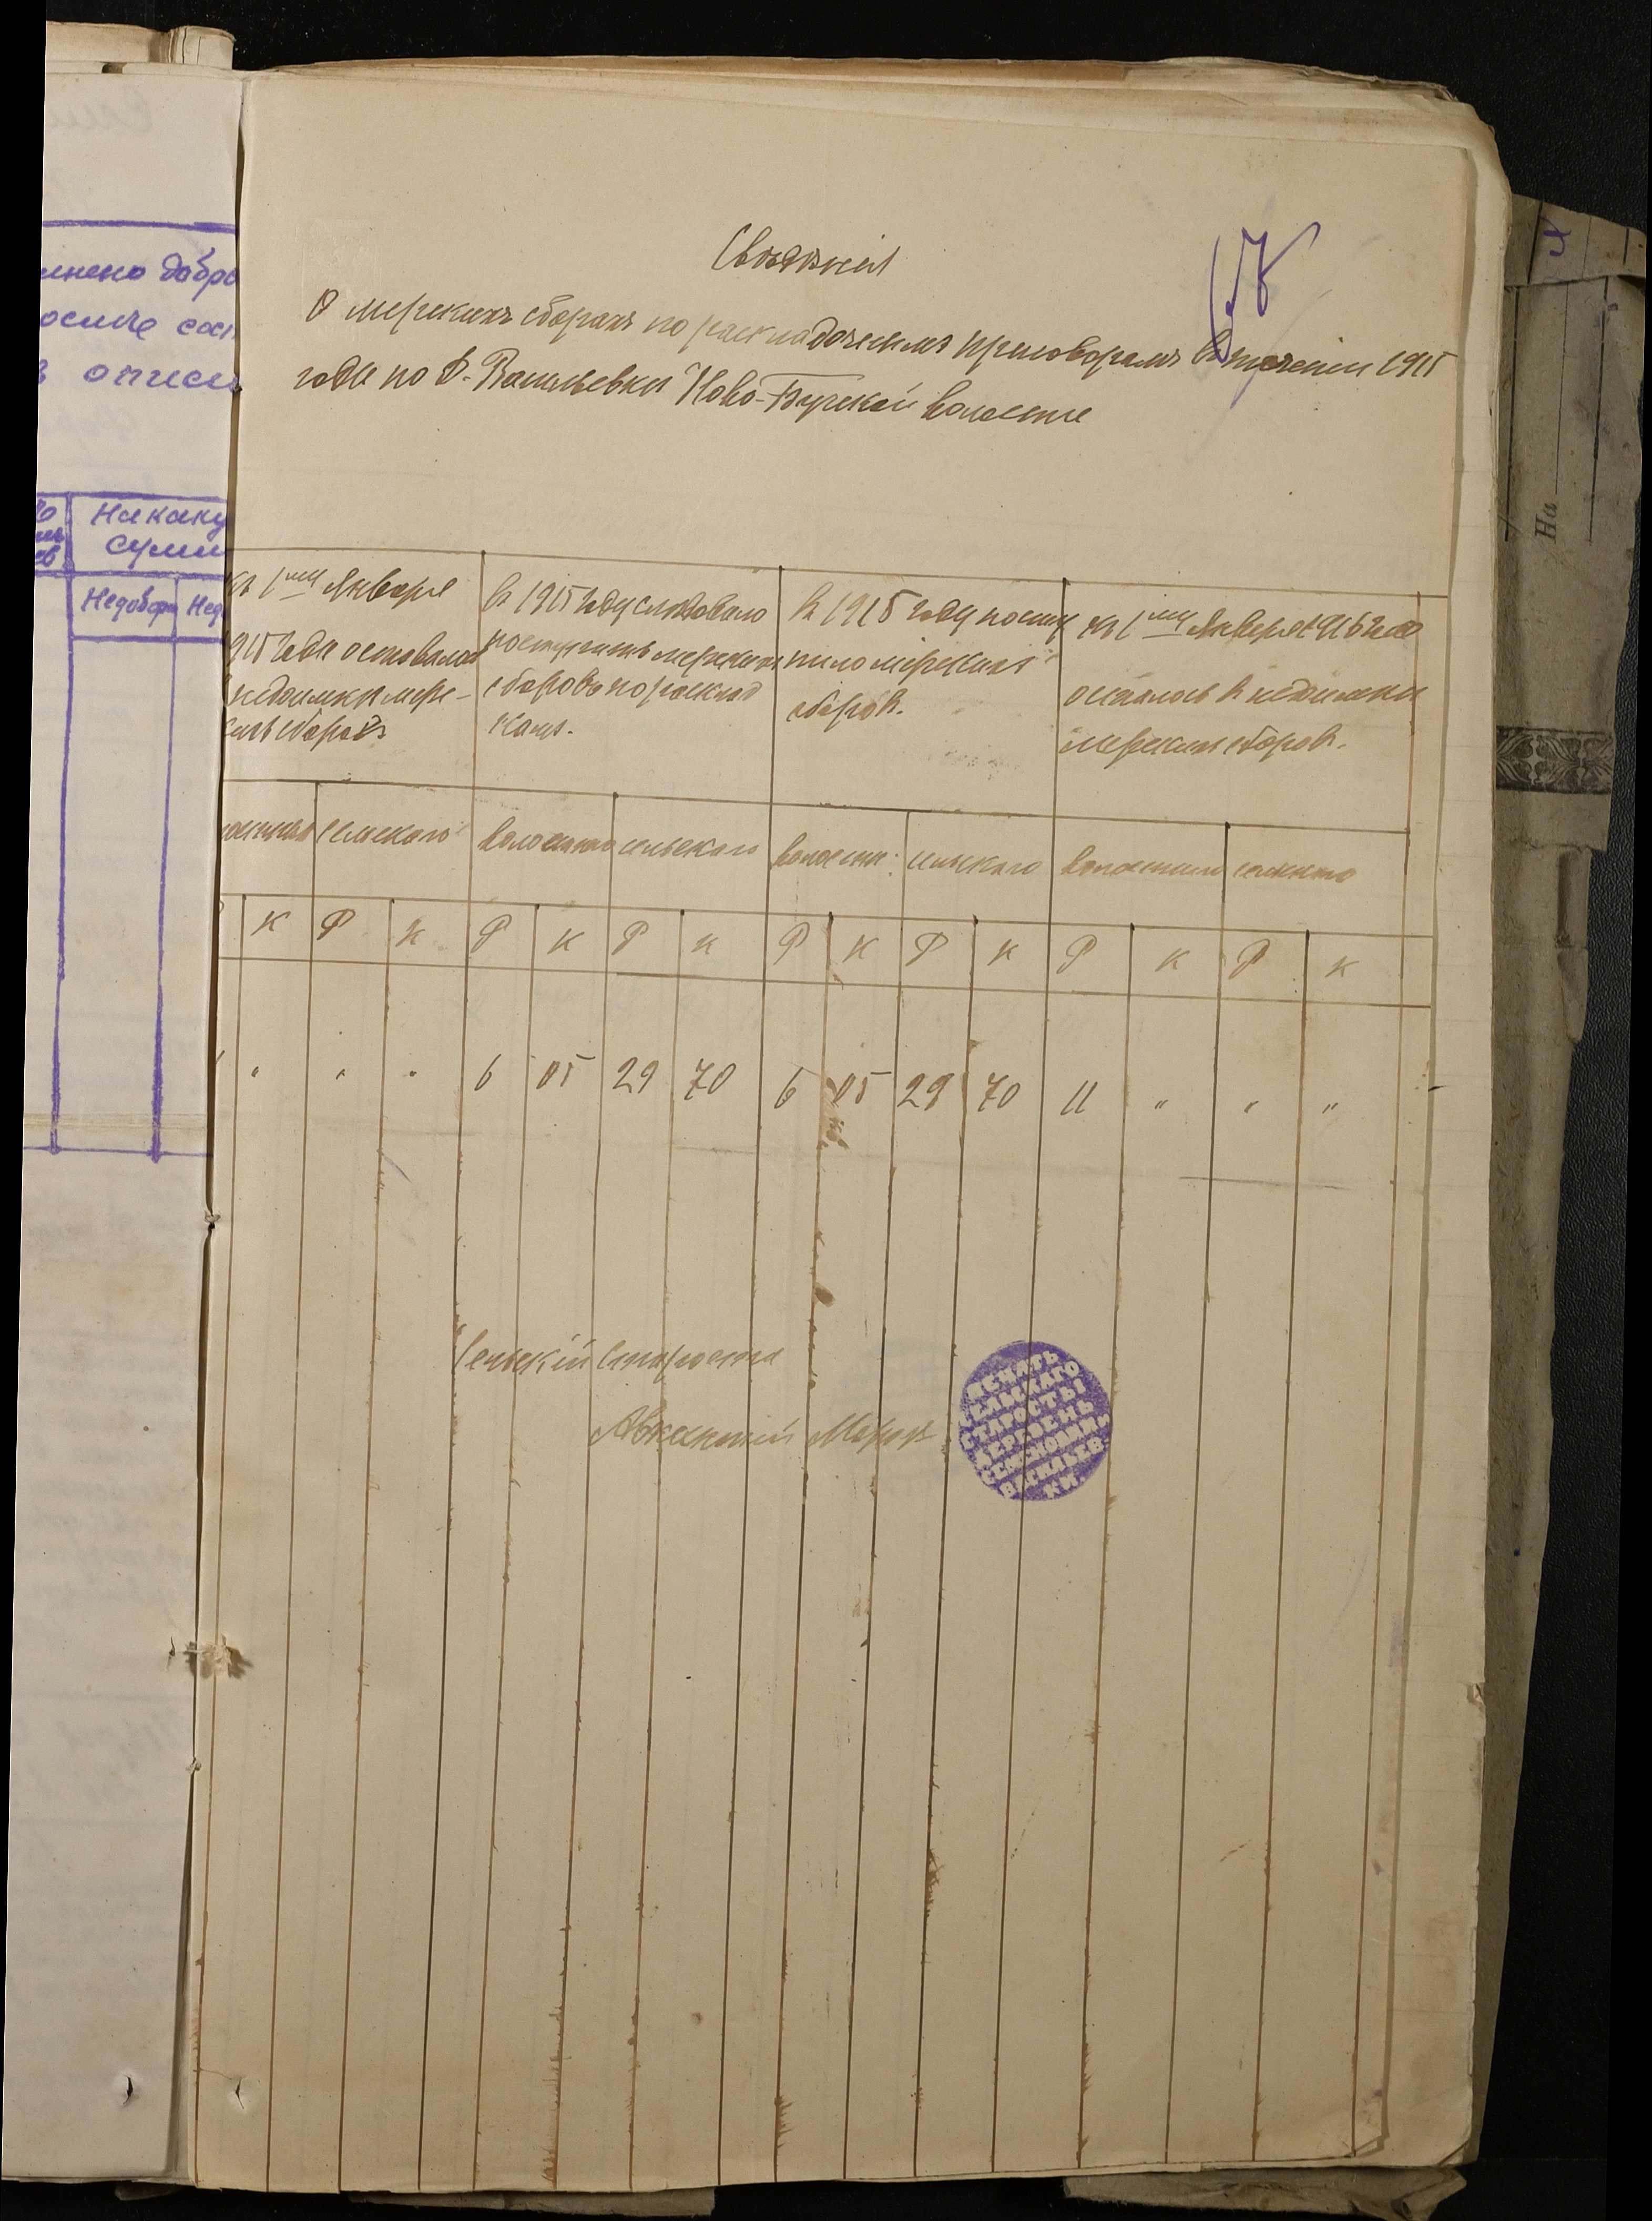 Свѣдѣнія
О мірскихъ сборахъ по раскладочнымъ приговорамъ въ теченіи 1915
года по д. Васильевки Ново-Бугской волости
къ 1му Января
915 года оставалось
недоимки мір-
скихъ сборовъ
В 1915 году слѣдовало
поступить мірскихъ
сборовъ по расклад
камъ.
В 1915 году посту
пило мірскихъ
сборов.
къ 1му Января 1916 года
осталось в недоимки
мірскихъ сборов.
сельскаго волостного сельскаго волостн: сельскаго волостного сельскаго
К Р К Р К Р К Р К Р К Р К Р К
" " " 6 05 29 70 6 05 29 70 " " " "
Сельскій Староста
Авксентий Мороз
ПЕЧАТЬ
СЕЛЬСКАГО
СТАРОСТЫ
ДЕРЕВЕНЬ
ВАСИЛЬЕВ-
КИ.
лнено добро
после сос
в описи
На каку
сумм
Недобор Нед
На